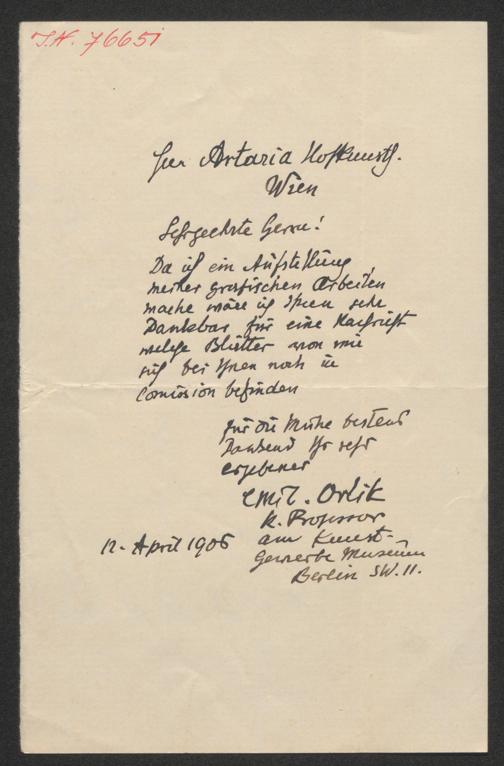 J.N. 76651
Herr Artaria Hofkunsth.
Wien
Sehrgeehrte Herrn!
Da ich ein Aufstellung
meiner grafischen Arbeiten
mache wäre ich Ihnen sehr
Dankbar für eine Nachricht
welche Blätter von mir
sich bei Ihnen noch in
Comission befinden
für die Mühe bestens
Dankend Ihr sehr
ergebener
Emil. Orlik
K. Professor
am Kunst-
12. April 1906
Gewerbe Museum
Berlin SW. 11.